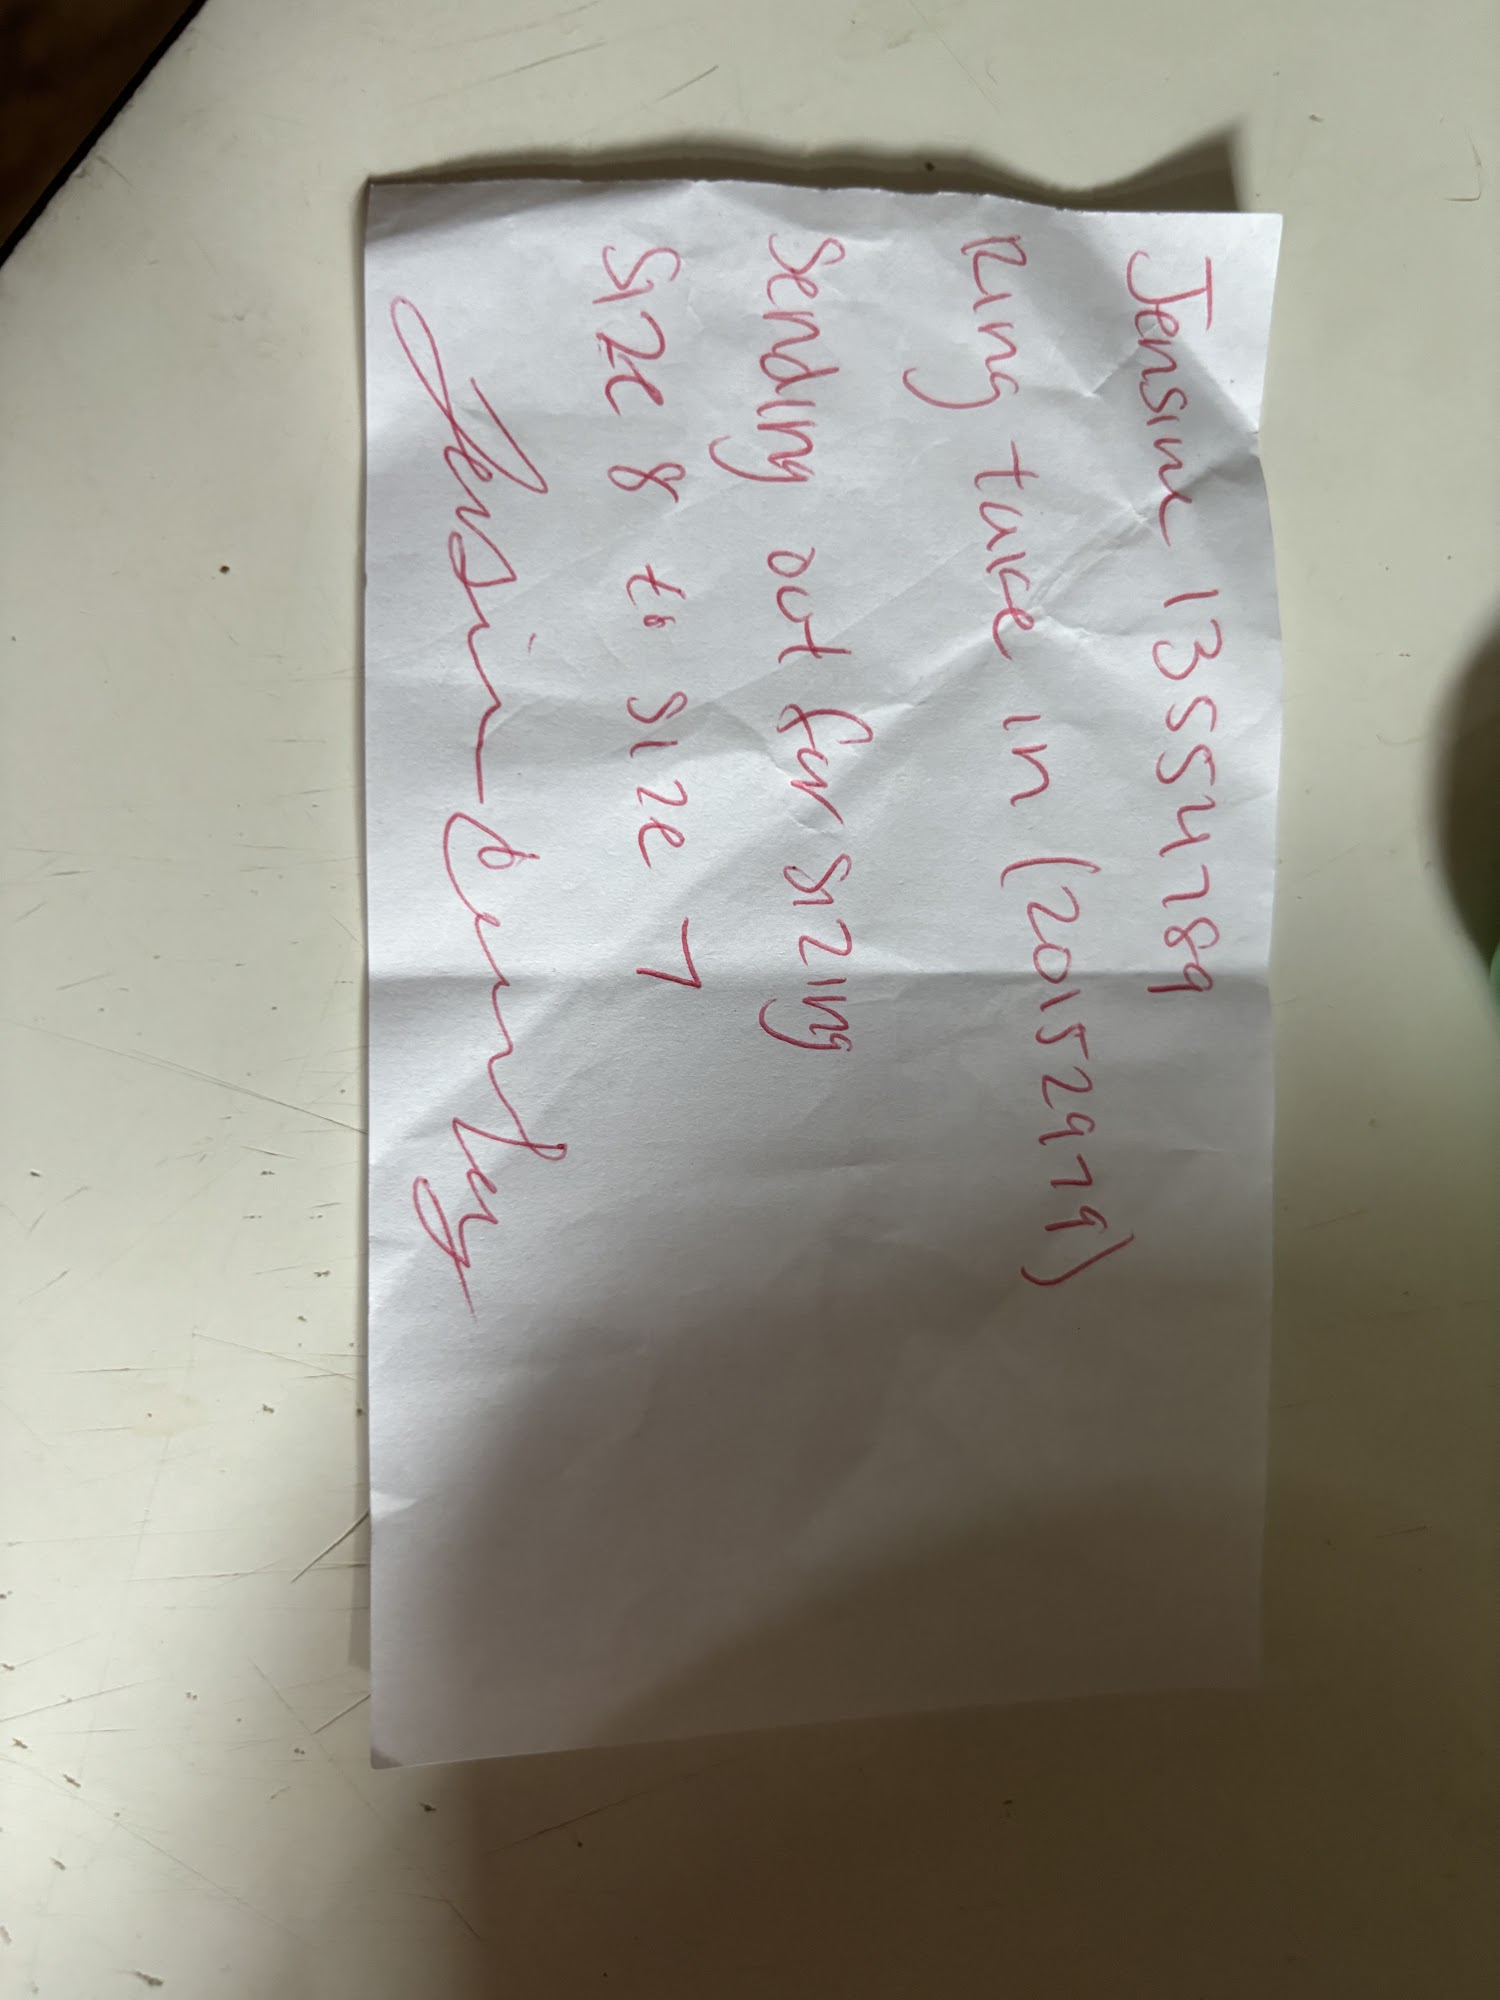 Jensine 13554789
Ring take in (20152979)
sending out for sizing
size 8 to size 7